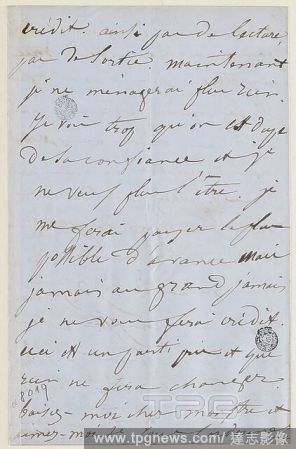 crédit. ainsi pas de lecture,
pas de sortie. maintenant
je ne ménagerai plus rien.
je vois trop qu'on est dupe
de sa confiance et je
ne veux plus l'être. je
me ferai payer le plus
possible d'avance mais
jamais au grand jamais
je ne vous ferai crédit.
ceci est un parti pris et que
rien ne fera changer
baisez-moi cher monstre et
aimez-moi
8019
TPG
www.tpgnews.com / 達志影像